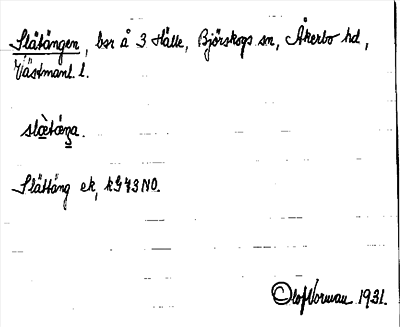 Slätängen, bsr å 3 Hälle, Björskogs sn, Åkerbo hd,
Västmanl. l.
slætæŋa.
Slättäng ek, kG43NO.
Olof Norman 1931.